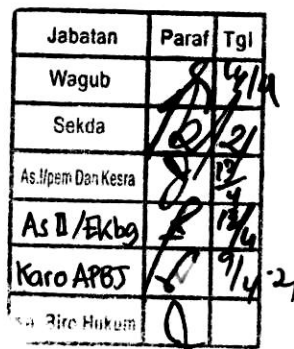 Jabatan Paraf Tgl
Wagub
Sekda 2/
As.I/pem Dan Kesra 17/4
As II /Ekbg 13/4
Karo APBJ 9/4-21
Ka. Biro Hukum